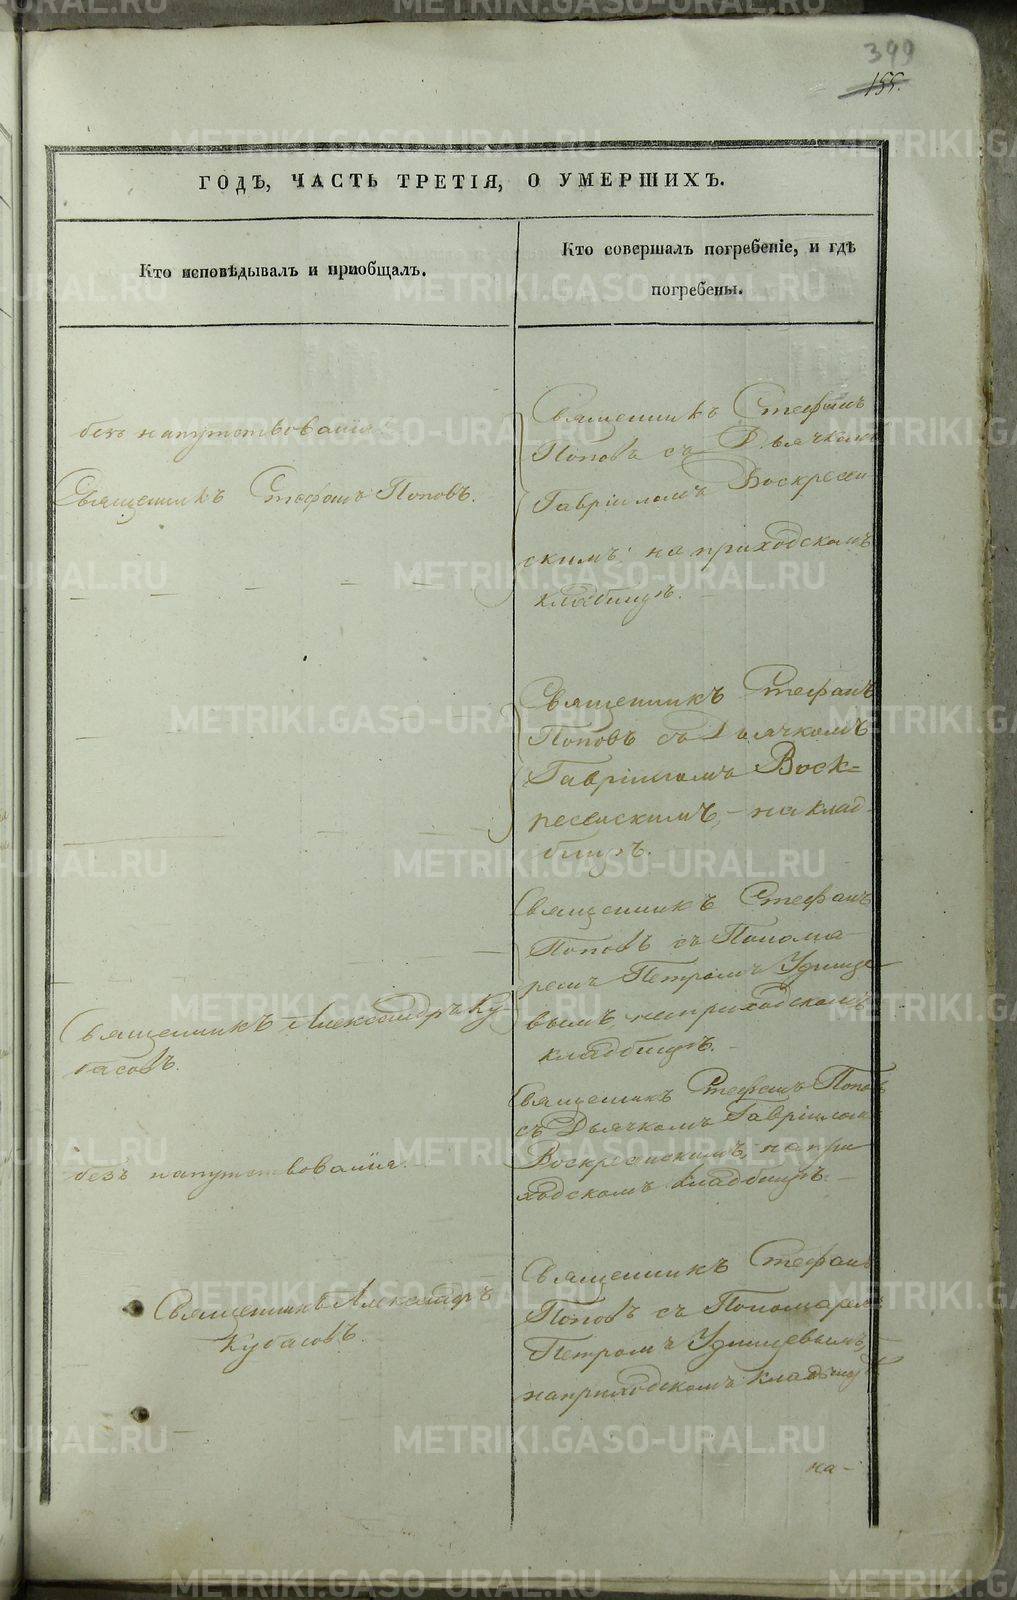 399
155.
ГОДЪ, ЧАСТЬ ТРЕТІЯ, О УМЕРШИХЪ.
Кто исповѣдывалъ и пріобщалъ.
Кто совершалъ погребеніе, и гдѣ
погребены.
безъ напутствованія
Священникъ Стефанъ Поповъ.
Священникъ Стефанъ
Поповъ съ Дьячкомъ
Гавріиломъ Воскресен
скимъ, на приходскомъ
кладбищѣ.
Священникъ Стефанъ
Поповъ съ Дьячкомъ
Гавріиломъ Воск=
ресенскимъ, – на клад-
бищѣ.
Священникъ Александръ Ку-
басовъ.
Священникъ Стефанъ
Поповъ съ Понома-
ремъ Петромъ Удинце-
вымъ, на приходскомъ
кладбищѣ. –
безъ напутствованія. –
Священникъ Стефанъ Поповъ
съ Дьячкомъ Гавріиломъ
Воскресенскимъ, на при
ходскомъ кладбищѣ. –
Священникъ Александръ
Кубасовъ.
Священникъ Стефанъ
Поповъ съ Пономаремъ
Петромъ Удинцевымъ, –
на приходскомъ кладбищѣ
на –
METRIKI.GASO-URAL.RU